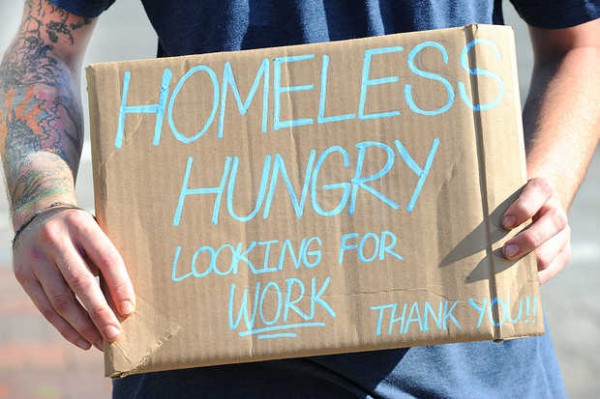 HOMELESS
HUNGRY
LOOKING FOR
WORK
THANK YOU!!